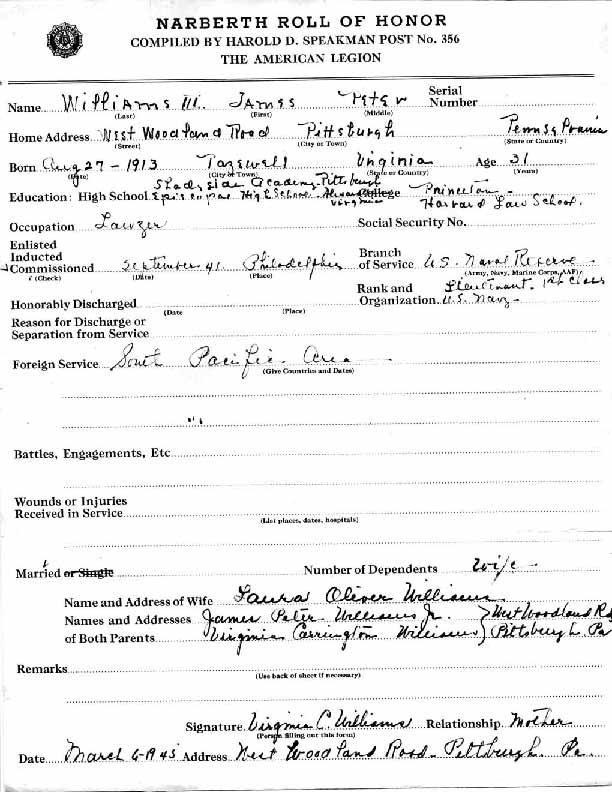 NARBERTH ROLL OF HONOR
COMPILED BY HAROLD D. SPEAKMAN POST No. 356
THE AMERICAN LEGION
Name Williams III. James Peter Serial Number
(Last) (First) (Middle)
Home Address West Woodland Road Pittsburgh
(Street) (City or Town) (State or Country)
Born Aug 27 - 1913 Tazewell Virginia Age 31
(Date) (City or Town) (State or Country) (Years)
Shadyside Academy Pittsburgh
Education: High School Episcopal High School College Princeton
Virginia Harvard Law School.
Occupation Lawyer Social Security No.
Enlisted
Inducted
Commissioned September 41 Philadelphia
(Check) (Date) (Place)
Branch of Service U.S. Naval Reserve
(Army, Navy, Marine Corps, AAF)
Rank and Organization Lieutenant. 1st Class
U.S. Navy -
Honorably Discharged
(Date (Place)
Reason for Discharge or
Separation from Service
Foreign Service South Pacific Area
(Give Countries and Dates)
Battles, Engagements, Etc
Wounds or Injuries
Received in Service
(List places, dates, hospitals)
Married or Single Number of Dependents Wife -
Name and Address of Wife Laura Oliver Williams
Names and Addresses James Peter Williams Jr. } West Woodland Rd
of Both Parents Virginia Carrington Williams } Pittsburgh Pa
Remarks
(Use back of sheet if necessary)
Signature Virginia C. Williams Relationship Mother
(Person filling out this form)
Date March 6-1945 Address West Woodland Road - Pittsburgh. Pa.